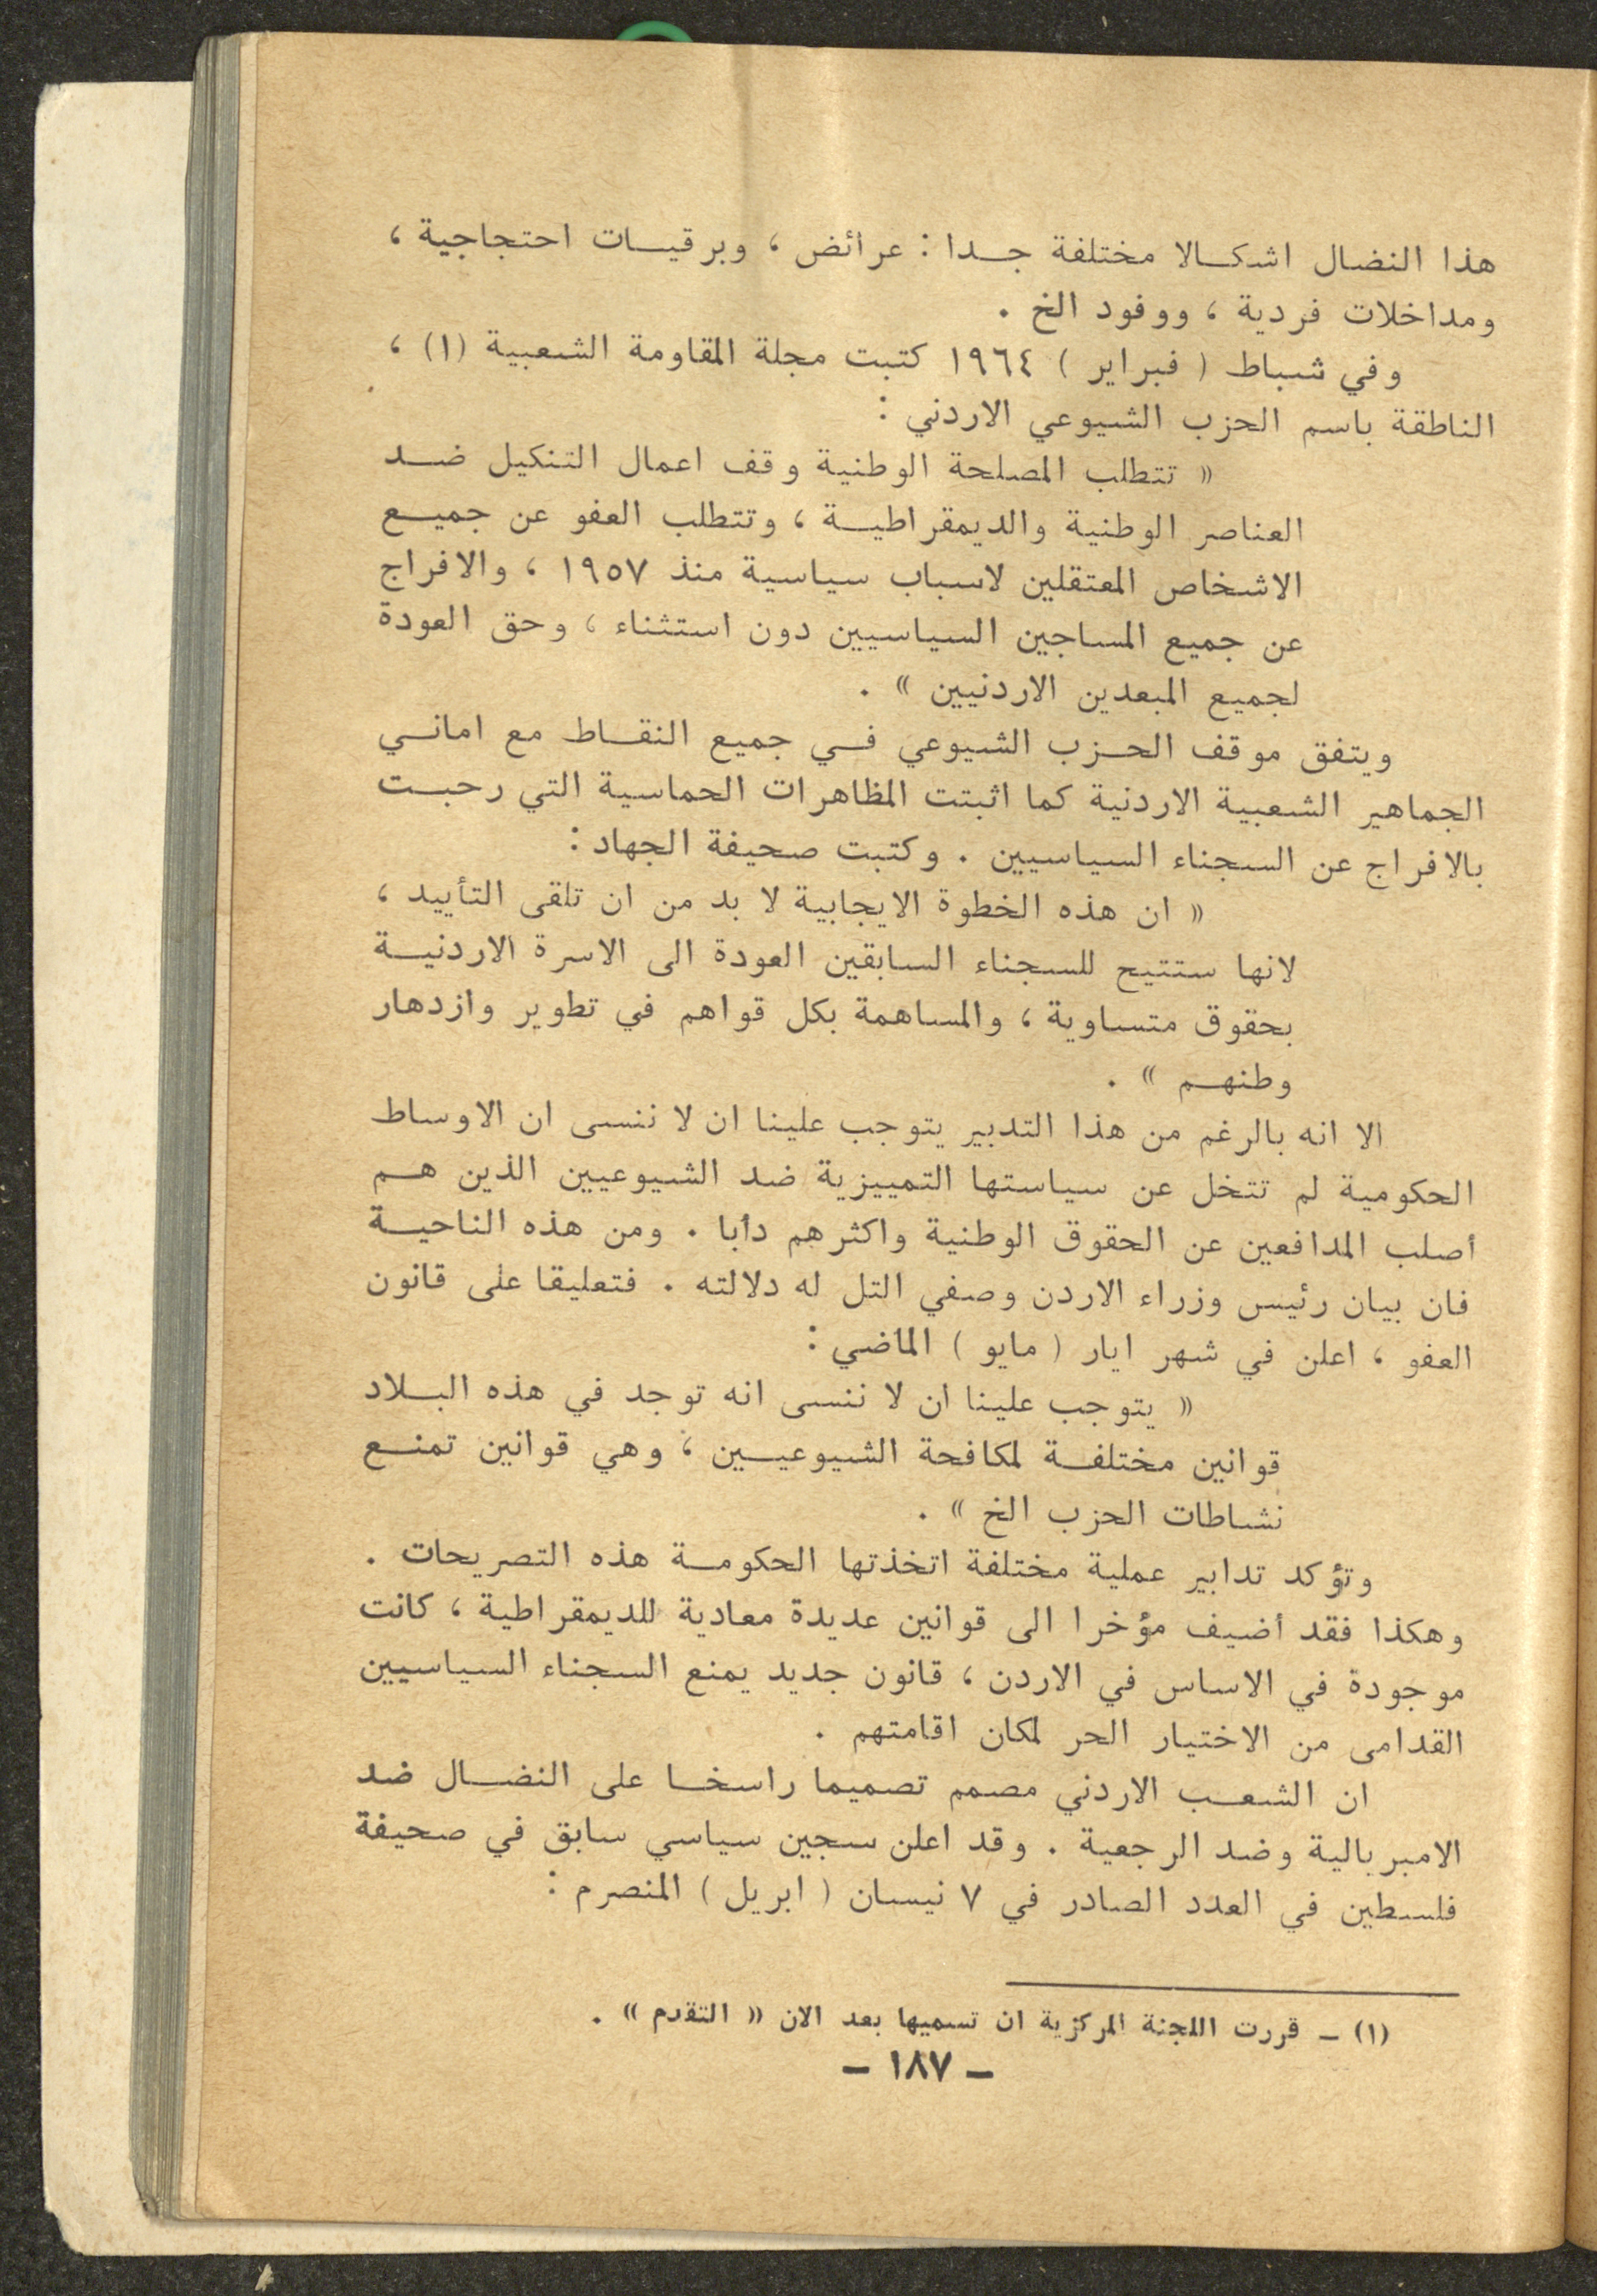 هذا النضال اشكالا مختلفة جدا : عرائض ، وبرقيات احتجاجية ،
ومداخلات فردية ، ووفود الخ .
وفي شباط ( فبراير ) ١٩٦٤ كتبت مجلة المقاومة الشعبية (١) ،
الناطقة باسم الحزب الشيوعي الاردني :
« تتطلب المصلحة الوطنية وقف اعمال التنكيل ضد
العناصر الوطنية والديمقراطية ، وتتطلب العفو عن جميع
الاشخاص المعتقلين لاسباب سياسية منذ ١٩٥٧ ، والافراج
عن جميع المساجين السياسيين دون استثناء ، وحق العودة
لجميع المبعدين الاردنيين » .
ويتفق موقف الحزب الشيوعي في جميع النقاط مع اماني
الجماهير الشعبية الاردنية كما اثبتت المظاهرات الحماسية التي رحبت
بالافراج عن السجناء السياسيين . وكتبت صحيفة الجهاد :
« ان هذه الخطوة الايجابية لا بد من ان تلقى التأييد ،
لانها ستتيح للسجناء السابقين العودة الى الاسرة الاردنية
بحقوق متساوية ، والمساهمة بكل قواهم في تطوير وازدهار
وطنهم » .
الا انه بالرغم من هذا التدبير يتوجب علينا ان لا ننسى ان الاوساط
الحكومية لم تتخل عن سياستها التمييزية ضد الشيوعيين الذين هم
أصلب المدافعين عن الحقوق الوطنية واكثرهم دأبا . ومن هذه الناحية
فان بيان رئيس وزراء الاردن وصفي التل له دلالته . فتعليقا على قانون
العفو ، اعلن في شهر ايار ( مايو ) الماضي :
« يتوجب علينا ان لا ننسى انه توجد في هذه البلاد
قوانين مختلفة لمكافحة الشيوعيين ، وهي قوانين تمنع
نشاطات الحزب الخ » .
وتؤكد تدابير عملية مختلفة اتخذتها الحكومة هذه التصريحات .
وهكذا فقد أضيف مؤخرا الى قوانين عديدة معادية للديمقراطية ، كانت
موجودة في الاساس في الاردن ، قانون جديد يمنع السجناء السياسيين
القدامى من الاختيار الحر لمكان اقامتهم .
ان الشعب الاردني مصمم تصميما راسخا على النضال ضد
الامبريالية وضد الرجعية . وقد اعلن سجين سياسي سابق في صحيفة
فلسطين في العدد الصادر في ٧ نيسان ( ابريل ) المنصرم :
(١) – قررت اللجنة المركزية ان تسميها بعد الان « التقدم » .
– ١٨٧ –